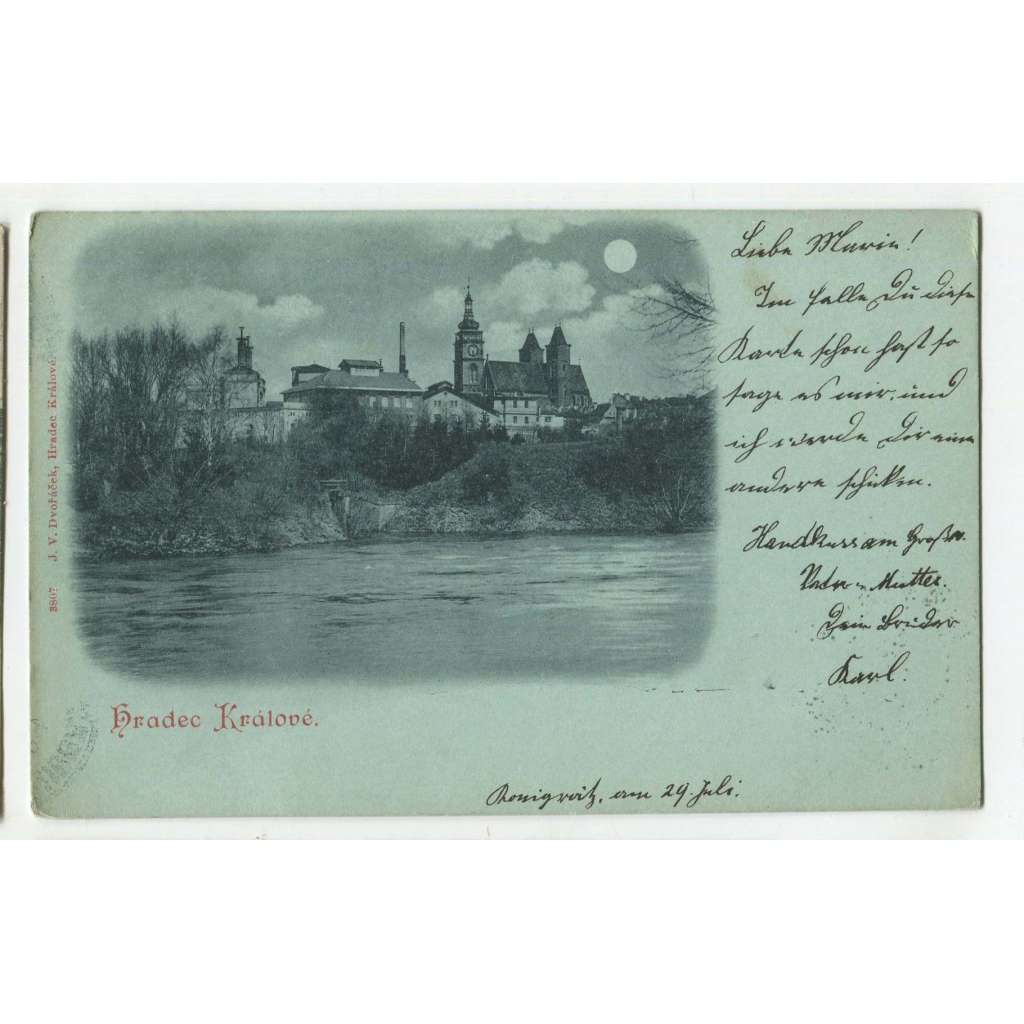 Liebe Marie!
Im falle Du diese
Karte schon hast so
sage es mir, und
ich werde Dir eine
andere schicken.
Handkuss am Großv.
Vater u. Mutter.
Dein Bruder
Karl.
3807 J. V. Dvořáček, Hradec Králové.
Hradec Králové.
Königrätz, am 29. Juli.